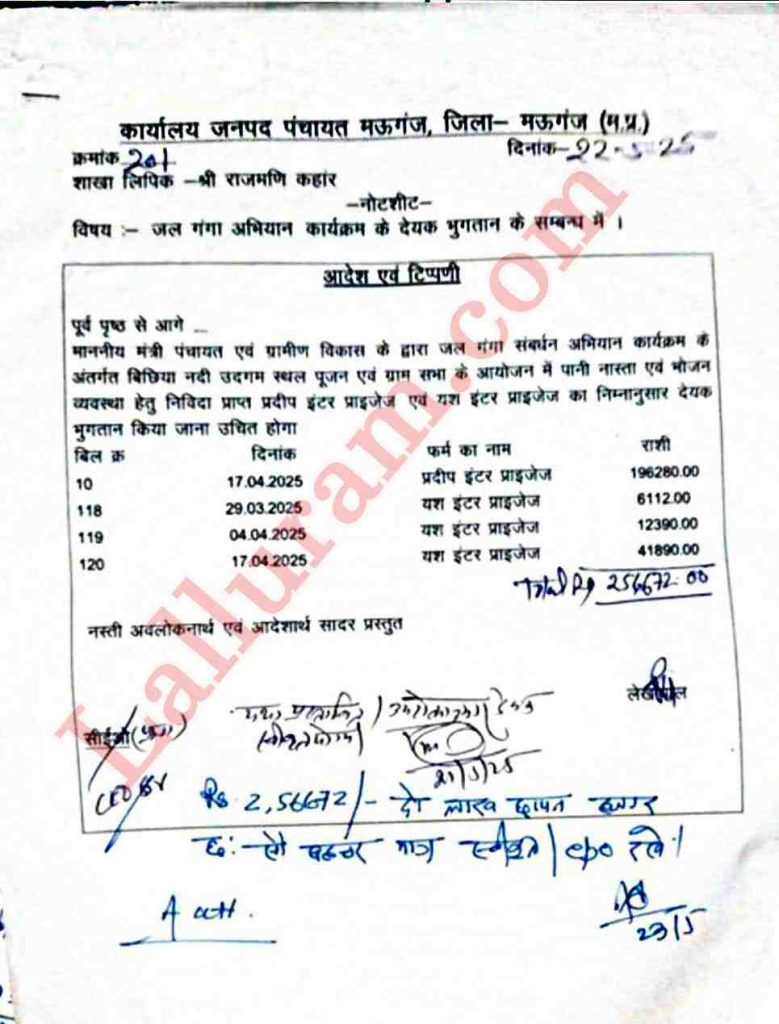 कार्यालय जनपद पंचायत मऊगंज, जिला– मऊगंज (म.प्र.)
क्रमांक 201 दिनांक– 22-5-25
शाखा लिपिक –श्री राजमणि कहार
–नोटशीट–
विषय :– जल गंगा अभियान कार्यक्रम के देयक भुगतान के सम्बन्ध में ।
आदेश एवं टिप्पणी
पूर्व पृष्ठ से आगे ...
माननीय मंत्री पंचायत एवं ग्रामीण विकास के द्वारा जल गंगा संबर्धन अभियान कार्यक्रम के
अंतर्गत बिछिया नदी उदगम स्थल पूजन एवं ग्राम सभा के आयोजन में पानी नास्ता एवं भोजन
व्यवस्था हेतु निविदा प्राप्त प्रदीप इंटर प्राइजेज एवं यश इंटर प्राइजेज का निम्नानुसार देयक
भुगतान किया जाना उचित होगा
बिल क्र दिनांक फर्म का नाम राशी
10 17.04.2025 प्रदीप इंटर प्राइजेज 196280.00
118 29.03.2025 यश इंटर प्राइजेज 6112.00
119 04.04.2025 यश इंटर प्राइजेज 12390.00
120 17.04.2025 यश इंटर प्राइजेज 41890.00
Total Rs 256672.00
नस्ती अवलोकनार्थ एवं आदेशार्थ सादर प्रस्तुत
लेखापाल
सीईओ
Rs. 2,56672/- दो लाख छप्पन हजार
छः सौ बहत्तर मात्र स्वीकृत
A att.
23/5
Lalluram.com